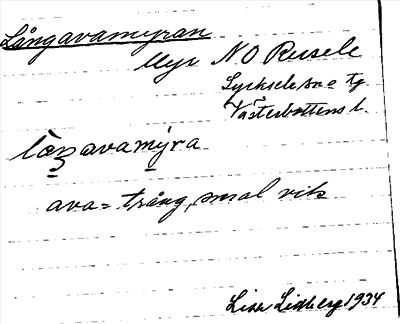 Långavamyran
Myr NO Rusele
Lycksele sn o tg
Västerbottens l.
lȧŋavamyra
ava = trång, smal vik
Lisa Lidberg 1934